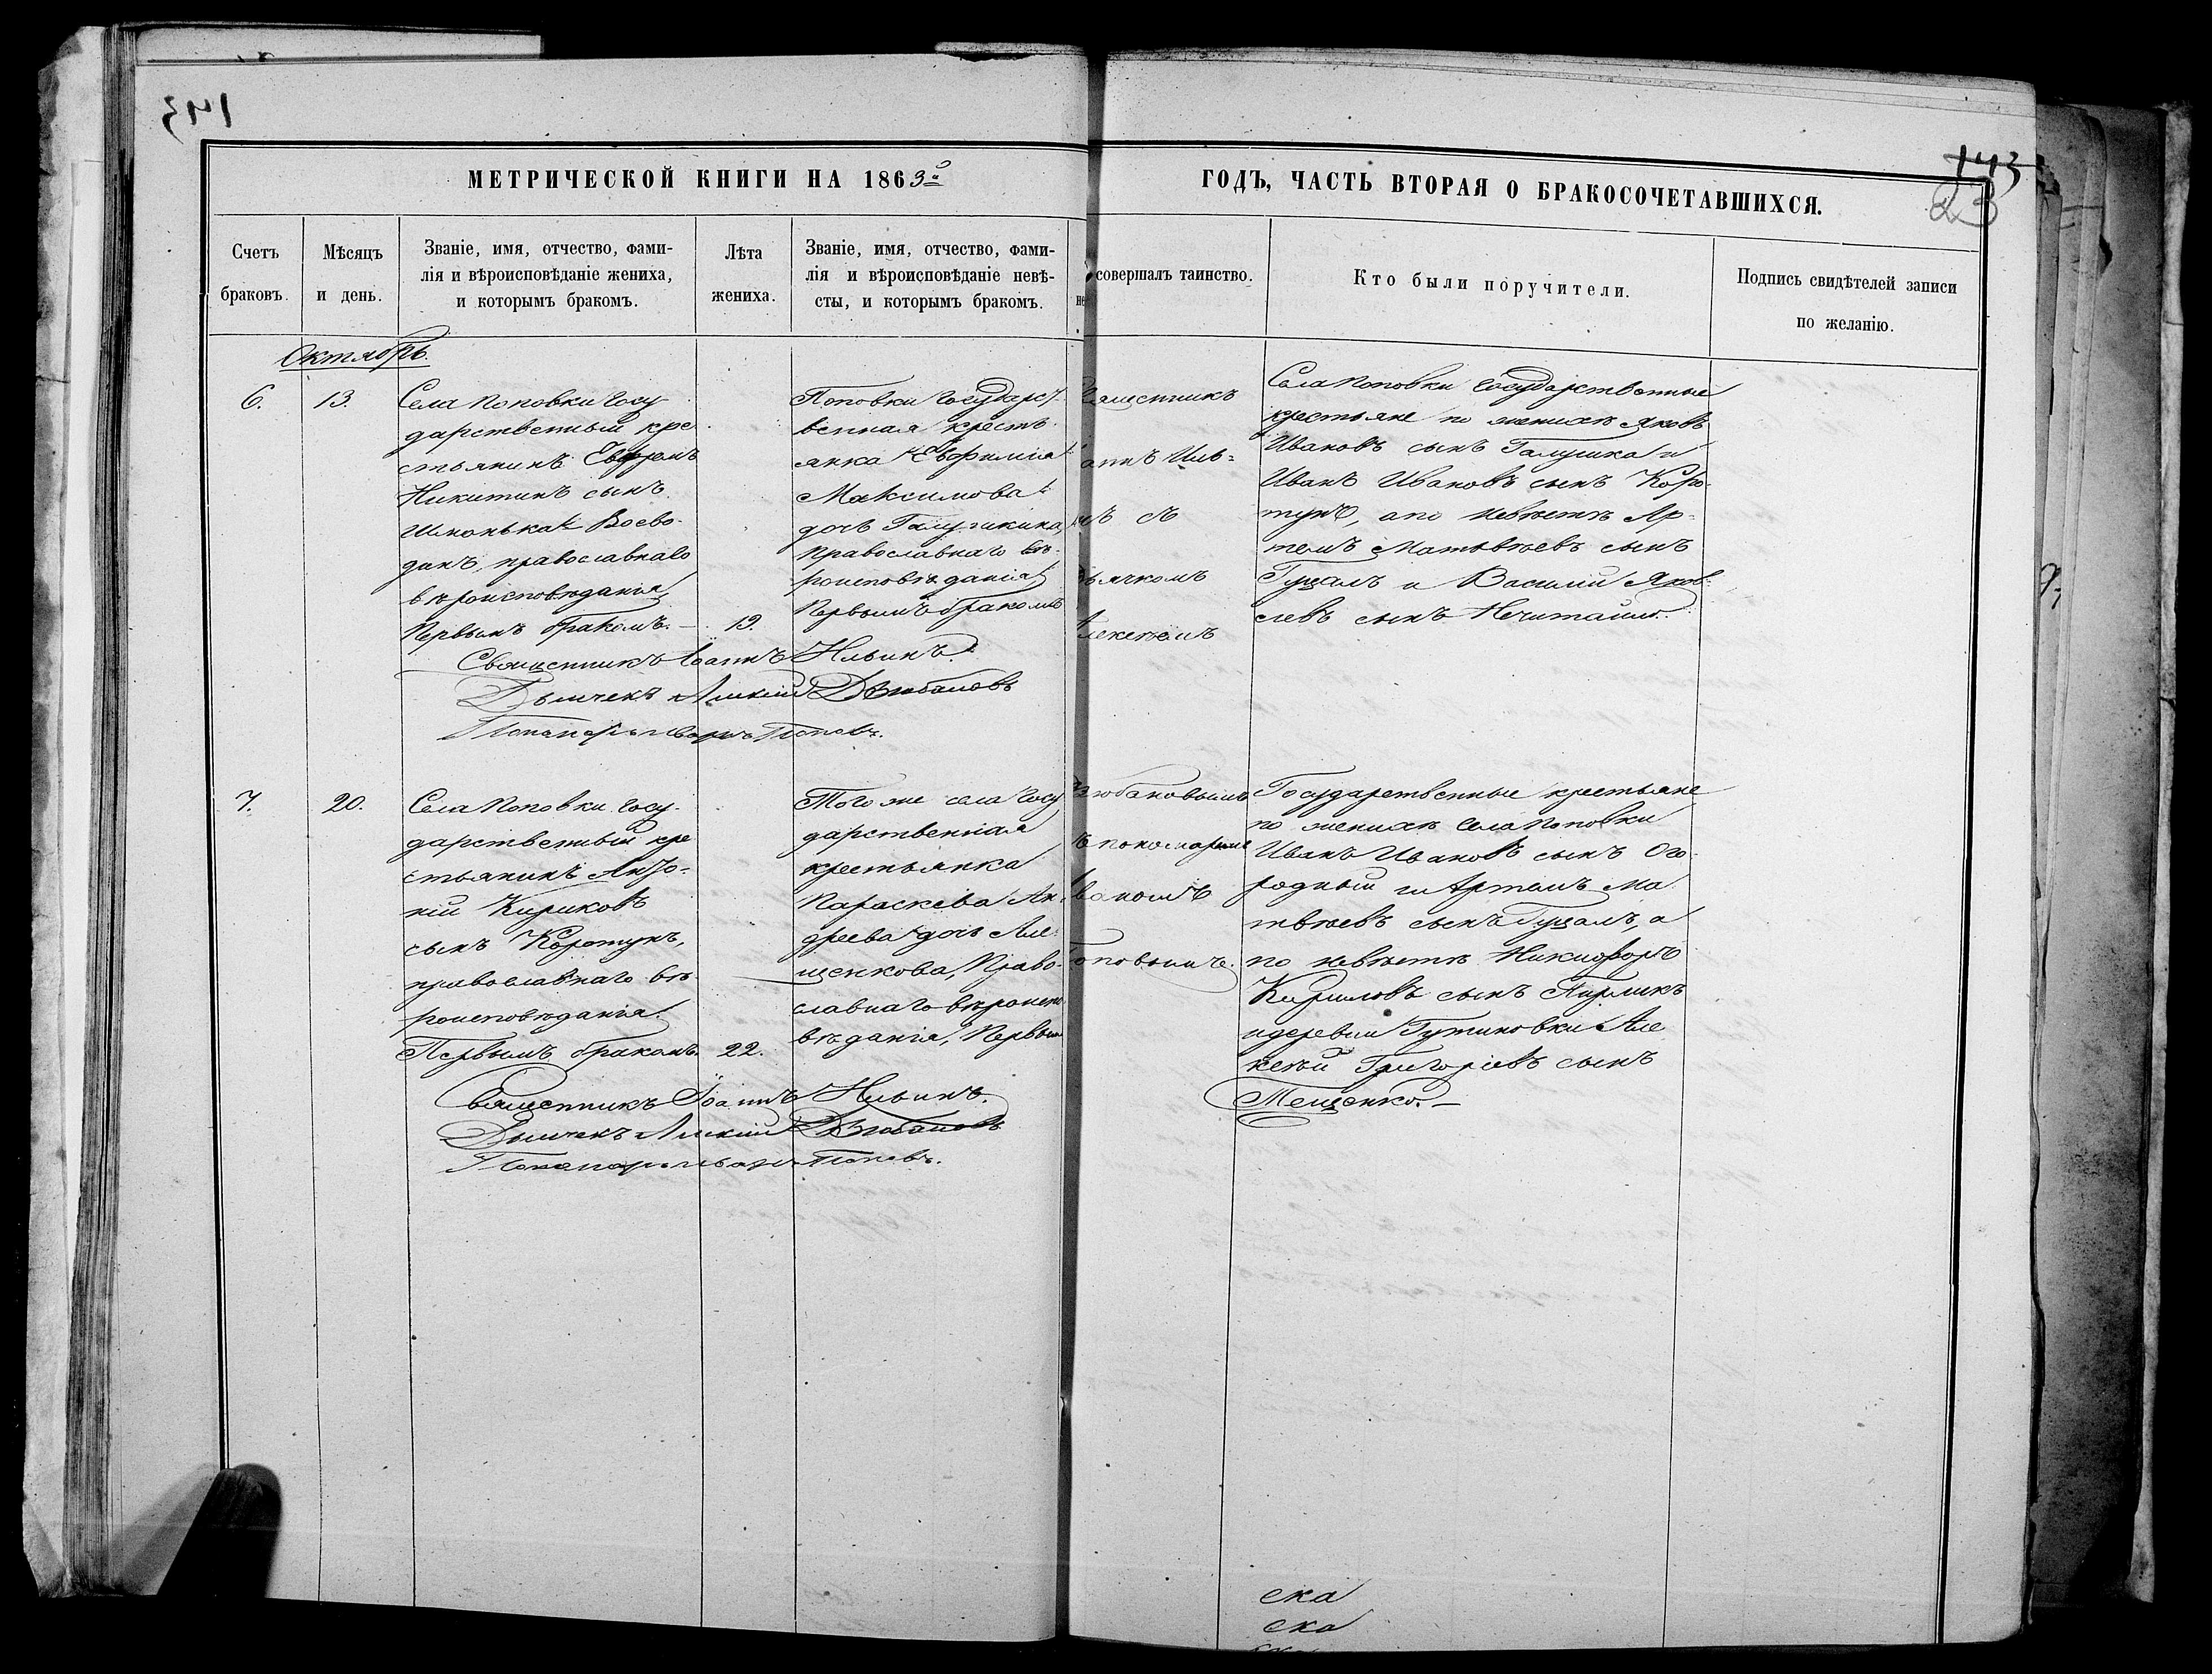 143
МЕТРИЧЕСКОЙ КНИГИ НА 1863й
ГОДЪ, ЧАСТЬ ВТОРАЯ О БРАКОСОЧЕТАВШИХСЯ.
143
23
Счетъ браковъ.
Мѣсяцъ и день.
Званіе, имя, отчество, фами-
лія и вѣроисповѣданіе жениха,
и которымъ бракомъ.
Лѣта жениха.
Званіе, имя, отчество, фами-
лія и вѣроисповѣданіе невѣ-
сты, и которымъ бракомъ.
совершалъ таинство.
Кто были поручители.
Подпись свидѣтелей записи
по желанію.
Октябрь.
6.
13.
Села Поповки Госу
дарственный кре
стьянинъ
Никитинъ сынъ
Шконька Воево-
данъ, православнаго
вѣроисповѣданія,
Первымъ бракомъ. —
19.
Поповки Государст
венная кресть
янка Евфимія
Максимова
дочь Галушкина,
православнаго вѣ-
роисповѣданія
Первымъ бракомъ
Священникъ Іоаннъ Ильинъ.
Дьячекъ Алксій Дзюбановъ
Пономарь Иванъ Поповъ.
вященникъ
аннъ Иль=
нъ съ
ьячкомъ
Алексѣемъ
Села Поповки Государственные
крестьяне по женихѣ Яковъ
Ивановъ сынъ Галушка и
Иванъ Ивановъ сынъ Коро-
тунъ, а по невѣстѣ Ар=
темъ Матвѣевъ сынъ
Гуцалъ и Василій Яков-
левъ сынъ Нечитайло.
7.
20.
Села Поповки Госу-
дарственный кре
стьянинъ Анто-
ній Кириковъ
сынъ Коротунъ,
православнаго вѣ
роисповѣданія.
Первымъ бракомъ.
22.
Того же села Госу
дарственная
крестьянка
Параскева Ан-
дреева дочь Але-
щенкова, Право-
славнаго вѣроиспо
вѣданія, Первым
Священникъ Іоаннъ Ильинъ.
Дьячекъ Алксій Дзюбановъ
Пономарь Иванъ Поповъ.
зюбановымъ
ъ пономаремъ
Иваномъ
Поповымъ.
Государственные крестьяне
по женихѣ Села Поповки
Иванъ Ивановъ сынъ Ого-
родный и Артемъ Ма
твѣевъ сынъ Гуцалъ, а
по невѣстѣ Никифоръ
Кириловъ сынъ
и деревни Гутниковки Але
ксѣй Григоріевъ сынъ
Тещенко. —
ска
ска